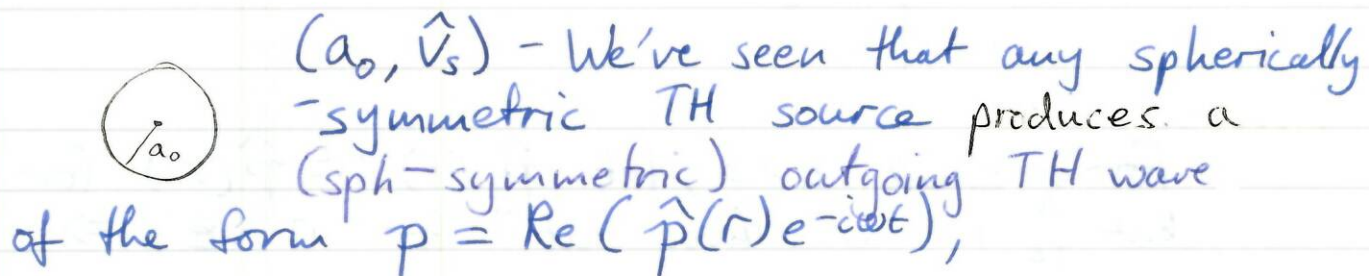 (a₀, v̂ₛ) - We've seen that any spherically
-symmetric TH source produces a
a₀
(sph-symmetric) outgoing TH wave
of the form p = Re ( p̂(r) e^{-iωt} ),